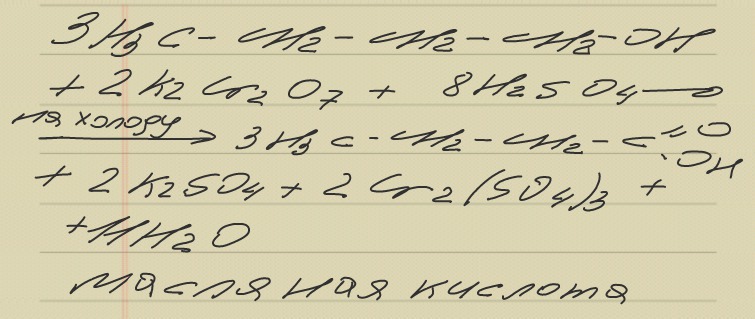 3H₃C – CH₂ – CH₂ – CH₂ – OH
+ 2K₂Cr₂O₇ + 8H₂SO₄ →
на холоду → 3H₃C – CH₂ – CH₂ – C = O
OH
+ 2K₂SO₄ + 2Cr₂(SO₄)₃ +
+ 11H₂O
масляная кислота